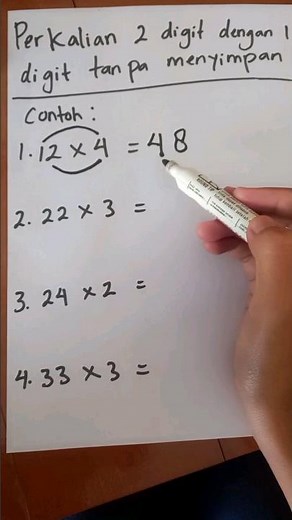 Perkalian 2 digit dengan 1
digit tanpa menyimpan
Contoh :
1. 12 × 4 = 48
2. 22 × 3 =
3. 24 × 2 =
4. 33 × 3 =